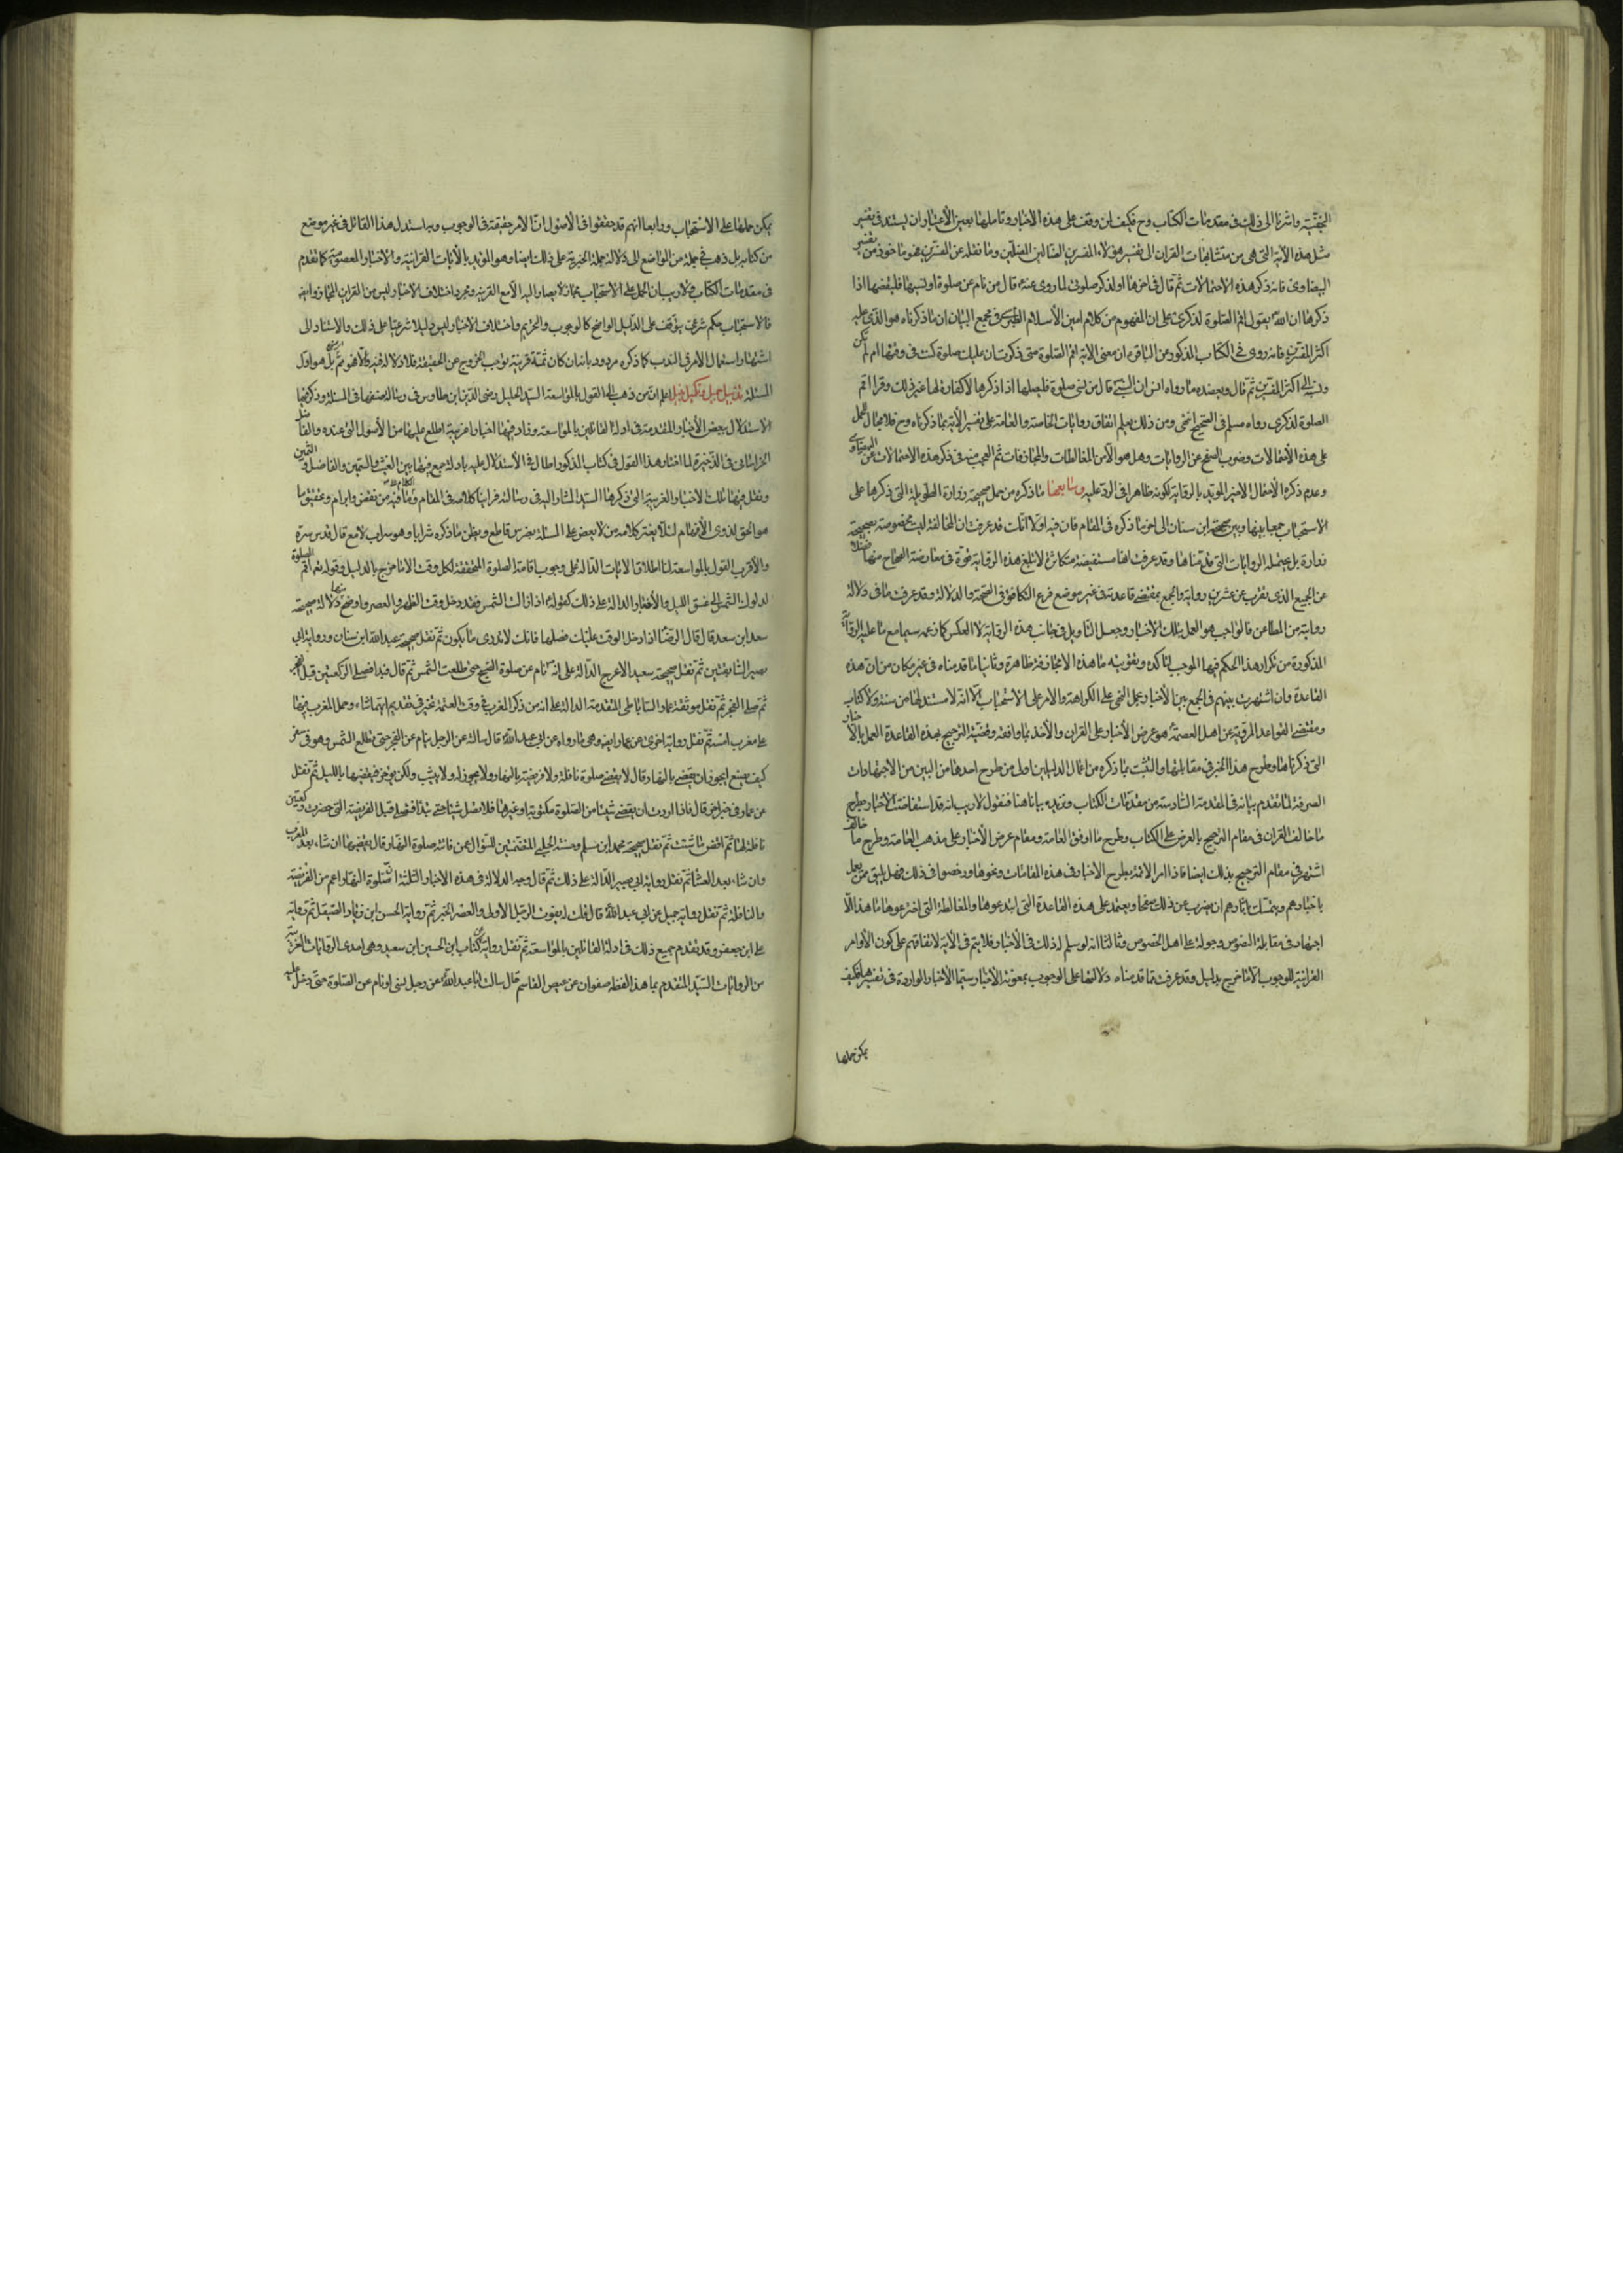 واشرنا الى ذلك فى مقدمات الكتاب وح فكيف لمن وقف على هذه الاخبار وتاملها بعين الاعتبار ان يستند فى تفسير
مثل هذه الآية التى هى من متشابهات القران الى تفسير هؤلاء المفسرين الضالين المضلين وما نقله عن المفسرين فهو ماخوذ من تفسير
البيضاوى فانه ذكر هذه الاحتمالات ثم قال فى اخرها او لذكر صلوتى لما روى عنه قال من نام عن صلوة او نسيها فليقضها اذا
ذكرها ان الله يقول اقم الصلوة لذكرى على ان المفهوم من كلام امين الاسلام الطبرسى فى مجمع البيان ان ما ذكرناه هو الذى عليه
اكثر المفسرين فانه روى فى الكتاب المذكور عن الباقر ان معنى الاية اقم الصلوة متى ذكرت ان عليك صلوة كنت فى وقتها ام لم تكن
ونسبه الى اكثر المفسرين ثم قال ويعضده ما رواه انس ان النبى قال من نسى صلوة فليصلها اذا ذكرها لا كفارة لها غير ذلك وقرا اقم
الصلوة لذكرى رواه مسلم فى الصحيح انتهى ومن ذلك يعلم اتفاق روايات الخاصة والعامة على تفسير الاية بما ذكرناه وح فلا مجال للحمل
على هذه الاحتمالات وضرب الصفح عن الروايات وهل هو الا من المغالطات والمجازفات ثم العجب منه فى ذكر هذه الاحتمالات عن البيضاوى
وعدم ذكره الاحتمال الاخير المؤيد بالرواية لكونه ظاهرا فى الرد عليه وسابعها ما ذكره من حمل صحيحة زرارة الطويلة التى ذكرها على
الاستحباب جمعا بينها وبين صحيحة ابن سنان الى اخر ما ذكره فى المقام فان فيه اولا انك قد عرفت ان المخالفة ليست مخصوصة بصحيحة
زرارة بل بجملة الروايات التى قدمناها وقد عرفت انها مستفيضة متكاثرة لا تبلغ هذه الرواية قوة فى معارضة الصحاح منها فضلا
عن الجميع الذى يقرب عن عشرين رواية والجمع بمقتضى قاعدته فى غير موضع فرع التكافؤ فى الصحة والدلالة وقد عرفت ما فى دلالة
رواية من المطاعن فالواجب هو العمل بتلك الاخبار وجعل التاويل فى جانب هذه الرواية لا العكس كما زعمه سيما مع ما عليه
المذكورة من تكرار هذا الحكم فيها الموجب لتاكده وتقويته ما هذه الا مجازفة ظاهرة وثانيا ما قدمناه فى غير مكان من ان هذه
القاعدة وان اشتهرت بينهم فى الجمع بين الاخبار بحمل النهى على الكراهة والامر على الاستحباب الا انه لا مستند لها من سنة ولا كتاب
ومقتضى القواعد المروية عن اهل العصمة هو عرض الاخبار على القران والاخذ بما وافقه وقضية الترجيح بهذه القاعدة العمل بالاخبار
التى ذكرناها وطرح هذا الخبر فى مقابلتها والتشبث بما ذكره من اعمال الدليلين اولى من طرح احدهما من البين من الاجتهادات
الصرفة لما تقدم بيانه فى المقدمة السادسة من مقدمات الكتاب ونزيده بيانا هنا فنقول لا ريب انه قد استفاضت الاخبار بطرح
ما خالف القران فى مقام الترجيح بالعرض على الكتاب وطرح ما وافق العامة ومقام عرض الاخبار على مذهب العامة وطرح ما خالف
اشتهر فى مقام الترجيح بذلك ايضا فاذا امر الائمة بطرح الاخبار فى هذه المقامات ونحوها ورخصوا فى ذلك فهل يليق ممن يعمل
باخبارهم ويتمسك باثارهم ان يضرب عن ذلك صفحا ويعتمد على هذه القاعدة التى ابتدعوها والمغالطة التى اخترعوها ما هذا الا
اجتهاد فى مقابلة النصوص وجراة على اهل الخصوص وثالثا انه لو سلم له ذلك فى الاخبار فلا يتم فى الاية لاتفاقهم على كون الاوامر
القرانية للوجوب الا ما خرج بدليل وقد عرفت مما قدمناه دلالتها على الوجوب بمعونة الاخبار سيما الاخبار الواردة فى تفسيرها فكيف
يمكن حملها
يمكن حملها على الاستحباب ورابعا انهم قد حققوا فى الاصول ان الامر حقيقة فى الوجوب وبه استدل هذا القائل فى غير موضع
من كتابه بل ذهب فى جملة من المواضع الى دلالة جملة الخبرية على ذلك ايضا وهو المؤيد بالآيات القرانية والاخبار المعصومية كما تقدم
فى مقدمات الكتاب ولا ريب ان الحمل على الاستحباب مجاز لا يصار اليه الا مع القرينة ومجرد اختلاف الاخبار ليس من قراين المجاز وايضا
فالاستحباب حكم شرعى يتوقف على الدليل الواضح كالوجوب والتحريم واختلاف الاخبار ليس دليلا شرعيا على ذلك والاستناد الى
اشتهار استعمال الامر فى الندب كما ذكره مردود بانه ان كان ثمة قرينة توجب الخروج عن الحقيقة فلا دلالة فيه والا فهو بل هو اول
المسئلة تذييل جميل وتكميل نبيل اعلم ان من ذهب الى القول بالمواسعة السيد الجليل رضى الدين ابن طاوس فى رسالة صنفها فى المسئلة وذكر فيها
الاستدلال ببعض الاخبار المتقدمة فى ادلة القائلين بالمواسعة وزاد فيها اخبارا غريبة اطلع عليها من الاصول التى عنده والفاضل
الخراسانى فى الذخيرة لما اختار هذا القول فى كتاب المذكور اطال فى الاستدلال عليه بادلة جمع فيها بين الغث والسمين
ونقل فيها تلك الاخبار الغريبة التى ذكرها السيد المشار اليه فى رسالته فراينا كلامه فى المقام وما فيه من نقض وابرام وتحقيق ما
هو الحق لذوى الافهام لئلا يغتر بكلامه من لا يعض على المسئلة بضرس قاطع ويظن ما ذكره شرابا وهو سراب لامع قال قدس سره
والاقرب القول بالمواسعة لنا اطلاق الايات الدالة على وجوب اقامة الصلوة المحققة لكل وقت الا ما خرج بالدليل وقوله تعالى اقم الصلوة
لدلوك الشمس الى غسق الليل والاخبار الدالة على ذلك كقوله اذا زالت الشمس فقد دخل وقت الظهر والعصر واوضح منها دلالة صحيحة
سعد ابن سعد قال قال الرضا اذا دخل الوقت عليك فصلها فانك لا تدرى ما يكون ثم نقل صحيحة عبد الله ابن سنان ورواية ابى
بصير السابقتين ثم نقل صحيحة سعيد الاعرج الدالة على انه نام عن صلوة الصبح حتى طلعت الشمس ثم قال فبدا فصلى الركعتين قبل الفجر
ثم صلى الفجر ثم نقل موثقة عمار الساباطى المتقدمة الدالة على انه من ذكر المغرب فى وقت العتمة مخير فى تقديم ايتهما شاء وحمل المغرب فيها
على مغرب امسه ثم نقل رواية اخرى عن عمار ايضا وهى ما رواه عن ابى عبد الله قال سالته عن الرجل ينام عن الفجر حتى تطلع الشمس وهو فى سفر
كيف يصنع ايجوز ان يقضى بالنهار قال لا يقضى صلوة نافلة ولا فريضة بالنهار ولا يجوز له ولا يثبت ولكن يؤخرها فيقضيها بالليل ثم نقل
عن عمار فى خبر اخر قال فاذا اردت ان تقضى شيئا من الصلوة مكتوبة او غيرها فلا تصل شيئا حتى تبدا فتصلى قبل الفريضة التى حضرت ركعتين
نافلة لها ثم اقض ما شئت ثم نقل صحيحة محمد ابن مسلم وحسنة الحلبى المتضمنتين للسؤال عمن فاتته صلوة النهار قال يقضيها ان شاء بعد المغرب
وان شاء بعد العشا ثم نقل رواية ابى بصير الدالة على ذلك ثم قال وجه الدلالة فى هذه الاخبار الثلثة ان صلوة النهار اعم من الفريضة
والنافلة ثم نقل رواية جميل عن ابى عبد الله قال قلت له يفوت الرجل الاولى والعصر الخبر ثم رواية الحسن ابن زياد الصيقل ثم رواية
على ابن جعفر وقد تقدم جميع ذلك فى ادلة القائلين بالمواسعة ثم نقل رواية عن كتاب ابن الحسين ابن سعيد وهى احدى الروايات الغريبة
من الروايات السيد المتقدم بما هذا لفظه صفوان عن عيص القاسم قال سالت ابا عبد الله عن رجل نسى او نام عن الصلوة حتى دخل عليه